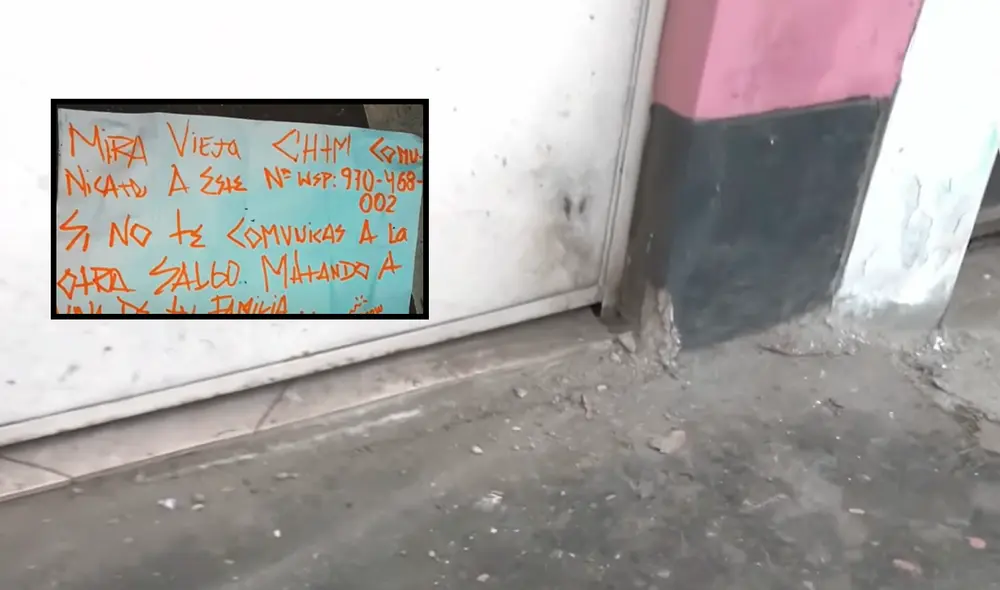 MiRA VieJA CHTM COMU-
NiCATE A ESTE Nº WSP: 970-468-
002
Si NO TE COMVUiCAS A La
OTRA SALGO.. MATANDO A
UNA DE tu FAMiLiA...